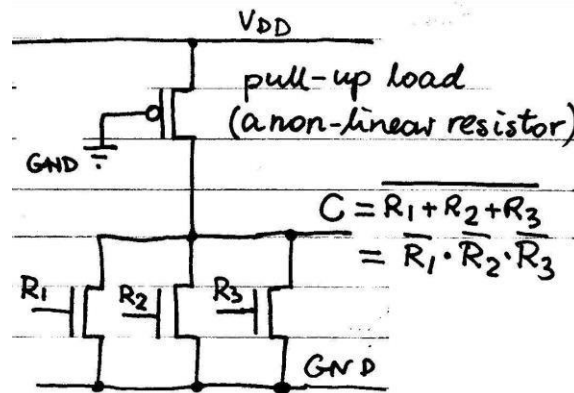 VDD
pull-up load
(a non-linear resistor)
GND
C = \overline{R1 + R2 + R3}
= \overline{R1} · \overline{R2} · \overline{R3}
R1 R2 R3
GND